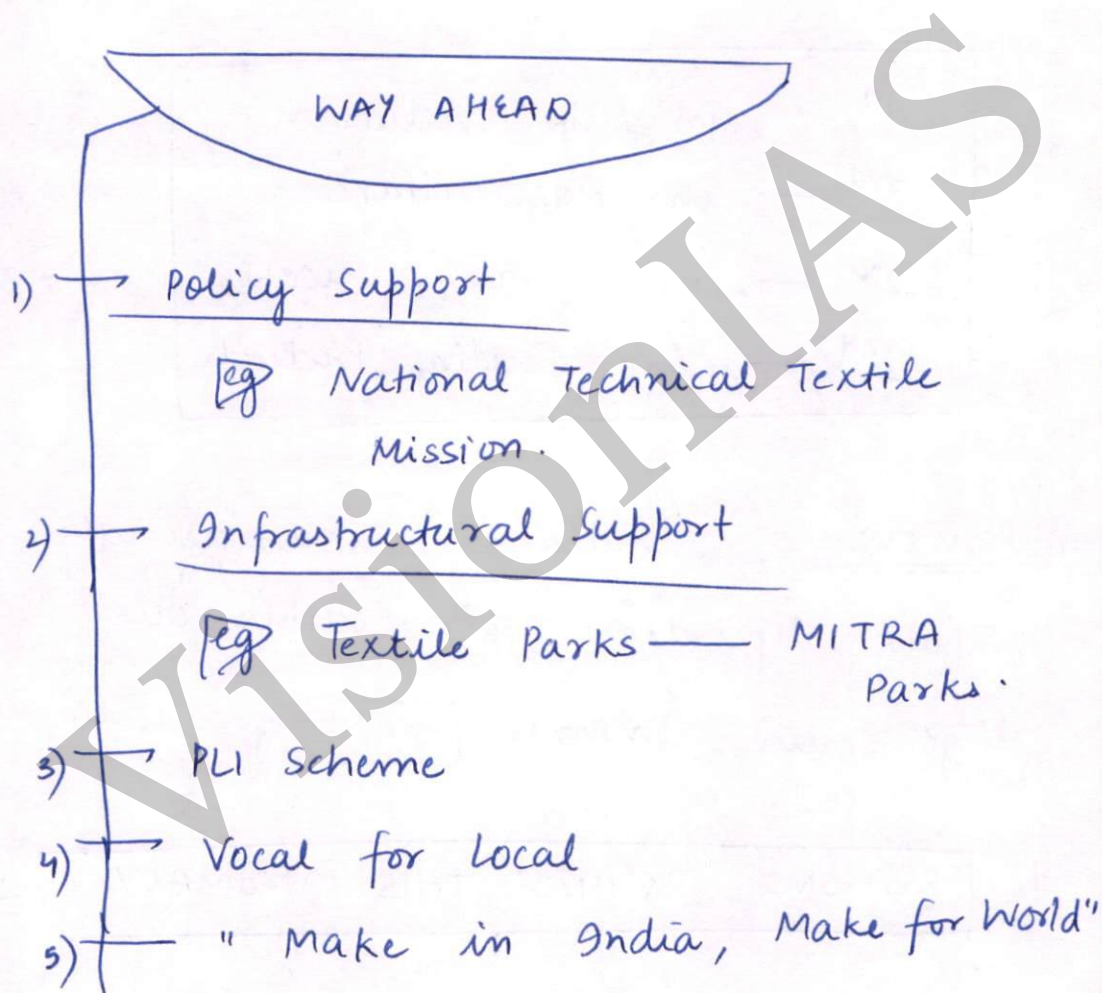 WAY AHEAD
1) Policy Support
eg National Technical Textile
Mission.
2) Infrastructural Support
eg Textile Parks — MITRA
Parks.
3) PLI Scheme
4) Vocal for Local
5) "Make in India, Make for World"
VisionIAS